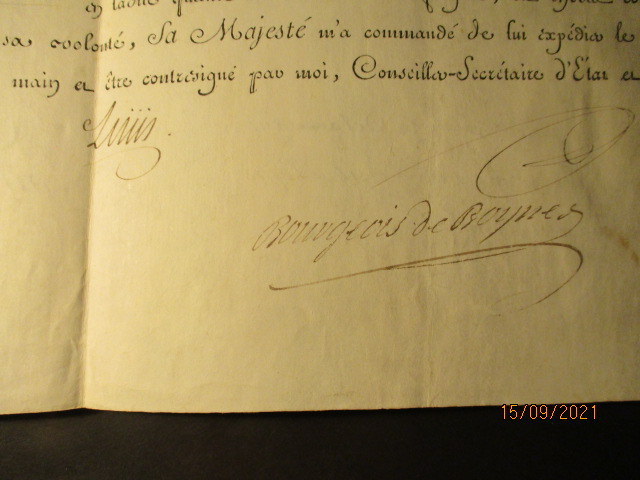 en ladite
sa volonté, Sa Majesté m'a commandé de lui expédier le
main et être contresigné par moi, Conseiller-Secrétaire d'État et
Louis.
Bourgeois de Boynes
15/09/2021